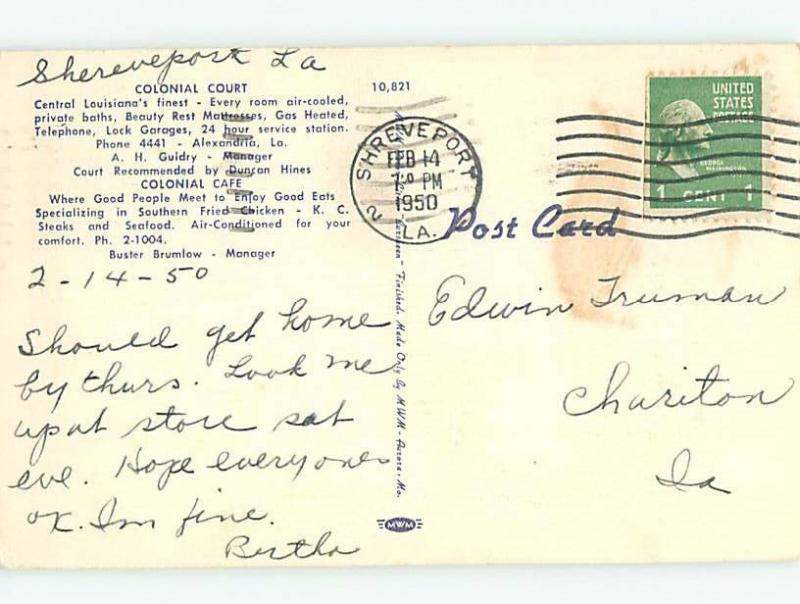 Shereveport La
COLONIAL COURT
Central Louisiana's finest - Every room air-cooled,
private baths, Beauty Rest Mattresses, Gas Heated,
Telephone, Lock Garages, 24 hour service station.
Phone 4441 - Alexandria, La.
A. H. Guidry - Manager
Court Recommended by Duncan Hines
COLONIAL CAFE
Where Good People Meet to Enjoy Good Eats
Specializing in Southern Fried Chicken - K. C.
Steaks and Seafood. Air-Conditioned for your
comfort. Ph. 2-1004.
Buster Brumlow - Manager
2-14-50
Should get home
by thurs. Look me
up at store sat
eve. Hope everyones
ok. Im fine.
Bertha
10,821
Finished. Made Only By MWM - Aurora, Mo.
MWM
SHREVEPORT
FEB 14
PM
1950
LA.
2
UNITED
STATES
POSTAGE
GEORGE
WASHINGTON
1 CENT 1
Post Card
Edwin Truman
Chariton
Ia